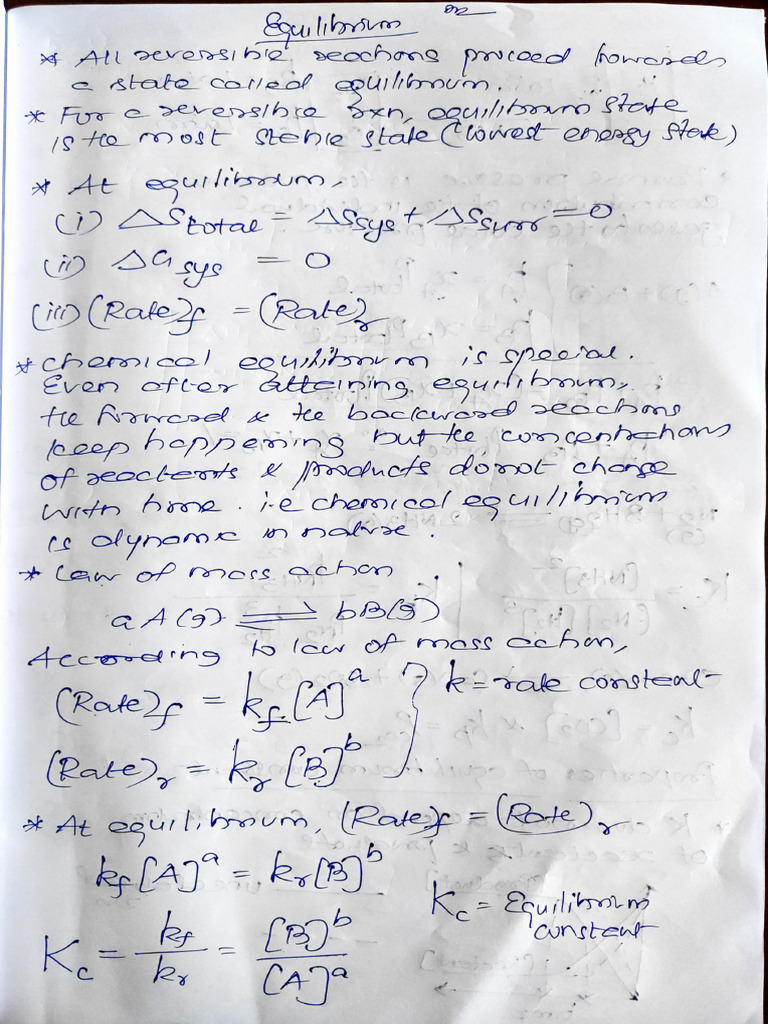 Equilibrium
* All reversible reactions proceed towards
a state called equilibrium.
* For a reversible rxn, equilibrium state
is the most stable state (lowest energy state)
* At equilibrium,
(i) ΔS_total = ΔS_sys + ΔS_surr = 0
(ii) ΔG_sys = 0
(iii) (Rate)_f = (Rate)_r
* chemical equilibrium is special.
Even after attaining equilibrium,
the forward & the backward reactions
keep happening but the concentrations
of reactants & products do not change
with time. i.e chemical equilibrium
is dynamic in nature.
* Law of mass action
aA(g) ⇌ bB(g)
According to law of mass action,
(Rate)_f = k_f [A]^a } k = rate constant
(Rate)_r = k_r [B]^b
* At equilibrium, (Rate)_f = (Rate)_r
k_f [A]^a = k_r [B]^b
K_c = k_f / k_r = [B]^b / [A]^a
K_c = Equilibrium
constant